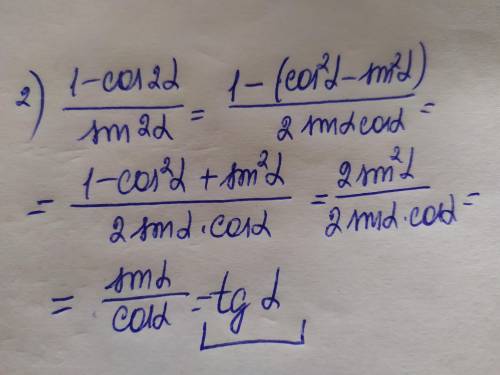 2) (1-cos2α)/(sin2α) = (1-(cos²α-sin²α))/(2sinαcosα) =
= (1-cos²α+sin²α)/(2sinα·cosα) = (2sin²α)/(2sinα·cosα) =
= (sinα)/(cosα) = tg α